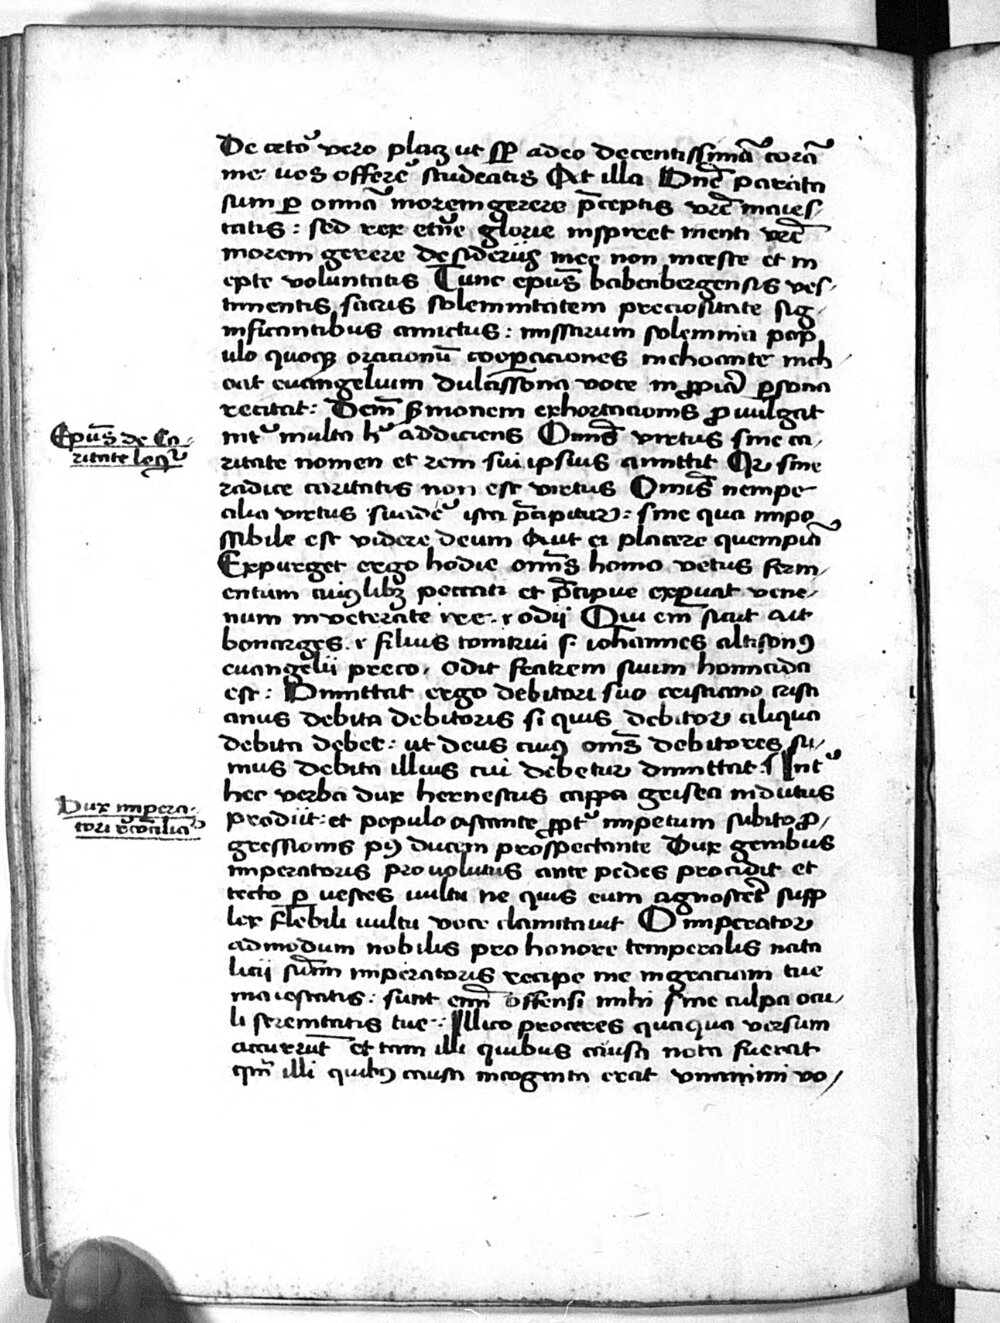 De ceto᷒ vero placꝫ ut sꝑ adeo decentissimā corā
me vos offerē studeatis At illa Dn̄e parata
sum ꝑ omnā morem gerere p̄ceptis vr̄e maies/
tatis : sed rex etn̄e glorie inspiret menti vr̄e
morem gerere desideriis mee non meste et in
epte voluntatis Tunc epūs babenbergensis ves/
timentis sacris solemnitatem preciositate sig/
nificantibus amictus : missarum solemnia pop
ulo quoqꝫ oracionū cooꝑaciones inchoante inch/
oat euāngelium dulcissona voce in ꝓpia ꝑsona
recitat : Dein sermonem exhortacionis ꝓvulgat
int᷒ multa h᷒ addiciens Omīs virtus sine ca/
Epūs de Ca/
ritate loqr᷒
ritate nomen et rem sui ipsius amittit Qr sine
radice caritatis non est virtus Omīs nempe
alia virtus suadē ista p̄cipitur : sine qua impo
ssibile est videre deum Aut ei placere quempiā
Expurget ergo hodie omīs homo vetus ferm/
entum cuiꝰlibꝫ peccati et p̄cipue expuat vene/
num inveterate ire ⁊ odij Qui em̄ sicut ait
bonarges ⁊ filius tonitrui s. iohannes altisonꝰ
euangelii preco, odit fratrem suum homicida
est : Dimittat ergo debitori suo cristiano cristi
anus debita debitoris si quis debitor aliqua
debita debet : ut deus cuiꝰ om̄s debitores su/
mus debita illius cui debetur dimittat. Int᷒
hec verba dux hernestus cappa grisea indutus
Dux impera/
tori r̄ōcilia᷒
prodiit : et populo astante ꝓpt᷒ impetum subito ꝓ/
gressionis pij ducem prospectante Dux genibus
imperatoris provolutus ante pedes procidit et
tecto ꝑ vestes vultu ne quis eum agnoscet̄ supp
lex flebili vultu voce clamitavit O imperator
admodum nobilis pro honore temperalis nata
licii sum̄i imperatoris recipe me in graciam tue
maiestatis : sunt em̄ offensi mihi sine culpa ocu/
li serenitatis tue : Illico proceres quaqua versum
accurrūt et tam illi quibus causa nota fuerat
qm̄ illi quibꝰ causa incognita erat unanimi vo/